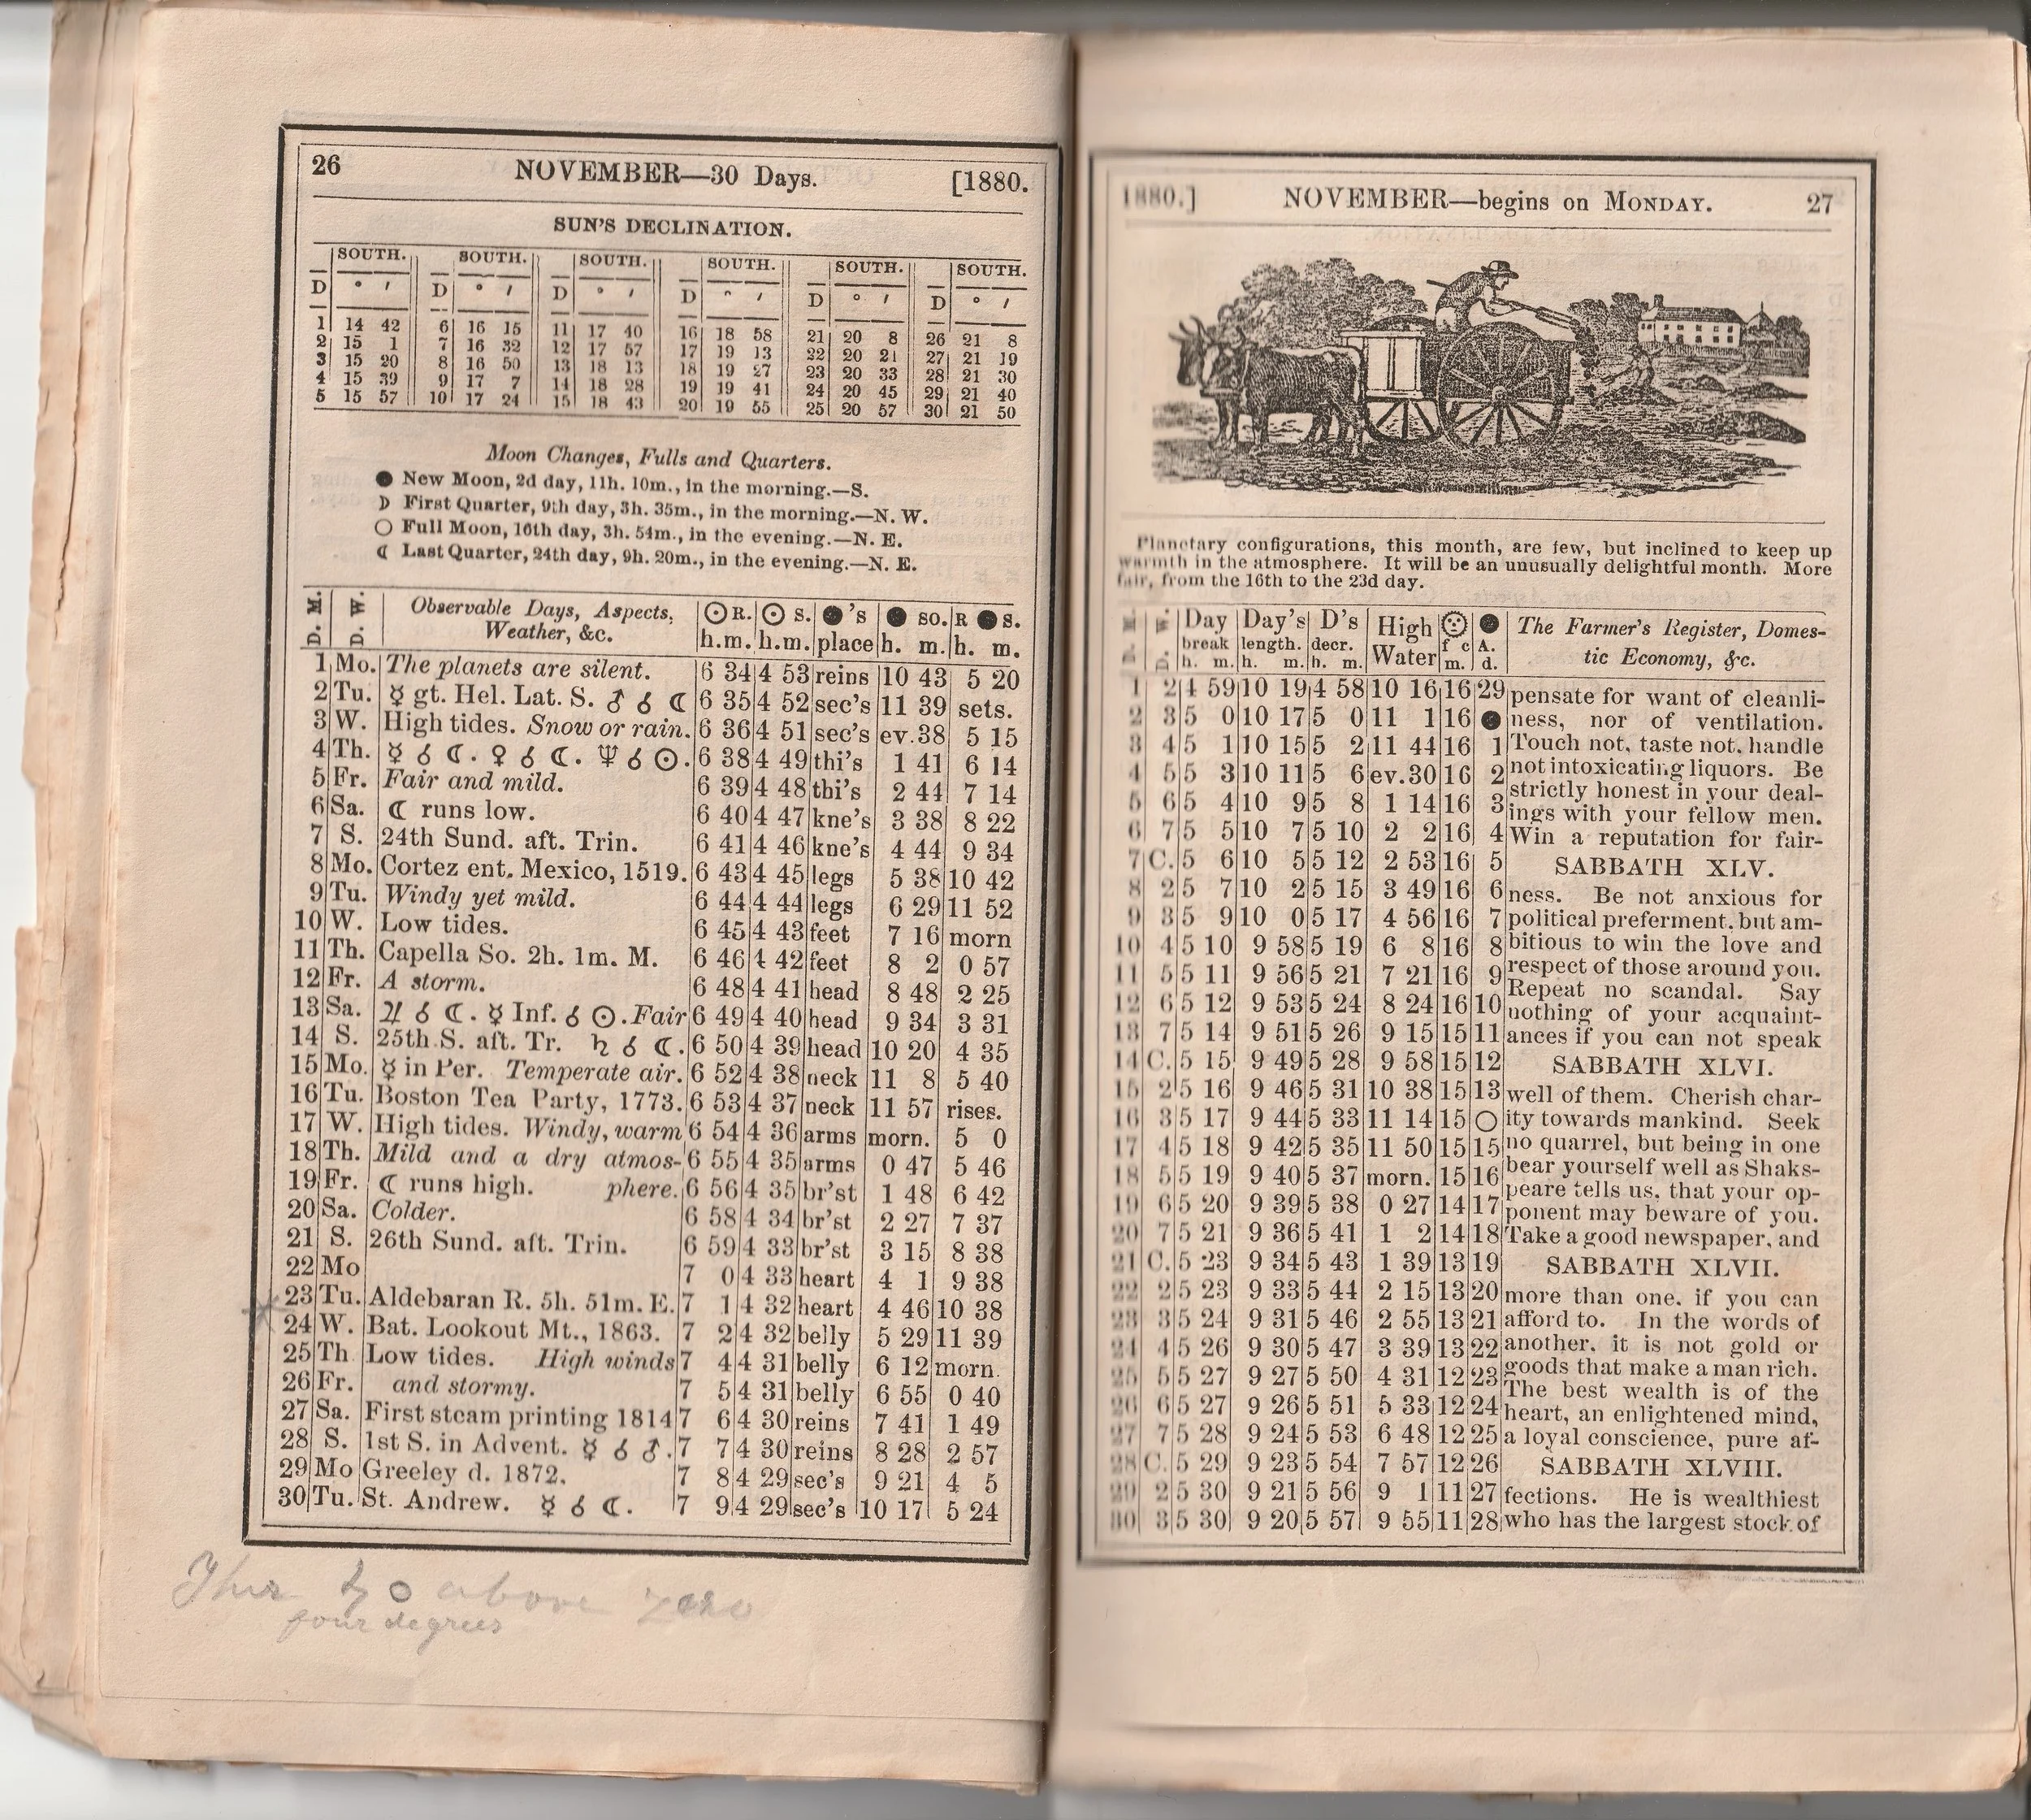 26 NOVEMBER—30 Days. [1880.
SUN'S DECLINATION.
SOUTH. SOUTH. SOUTH. SOUTH. SOUTH. SOUTH.
D ° ′ D ° ′ D ° ′ D ° ′ D ° ′ D ° ′
1 14 42 6 16 15 11 17 40 16 18 58 21 20 8 26 21 8
2 15 1 7 16 32 12 17 57 17 19 13 22 20 21 27 21 19
3 15 20 8 16 50 13 18 13 18 19 27 23 20 33 28 21 30
4 15 39 9 17 7 14 18 28 19 19 41 24 20 45 29 21 40
5 15 57 10 17 24 15 18 43 20 19 55 25 20 57 30 21 50
Moon Changes, Fulls and Quarters.
● New Moon, 2d day, 11h. 10m., in the morning.—S.
☽ First Quarter, 9th day, 3h. 35m., in the morning.—N. W.
○ Full Moon, 16th day, 3h. 54m., in the evening.—N. E.
☾ Last Quarter, 24th day, 9h. 20m., in the evening.—N. E.
D. M. D. W. Observable Days, Aspects, ☉ R. ☉ S. ●'s ● so. R ● S.
Weather, &c. h.m. h.m. place h. m. h. m.
1 Mo. The planets are silent. 6 34 4 53 reins 10 43 5 20
2 Tu. ☿ gt. Hel. Lat. S. ♂ ☌ ☾ 6 35 4 52 sec's 11 39 sets.
3 W. High tides. Snow or rain. 6 36 4 51 sec's ev.38 5 15
4 Th. ☿ ☌ ☾. ♀ ☌ ☾. ♆ ☌ ☉. 6 38 4 49 thi's 1 41 6 14
5 Fr. Fair and mild. 6 39 4 48 thi's 2 44 7 14
6 Sa. ☾ runs low. 6 40 4 47 kne's 3 38 8 22
7 S. 24th Sund. aft. Trin. 6 41 4 46 kne's 4 44 9 34
8 Mo. Cortez ent. Mexico, 1519. 6 43 4 45 legs 5 38 10 42
9 Tu. Windy yet mild. 6 44 4 44 legs 6 29 11 52
10 W. Low tides. 6 45 4 43 feet 7 16 morn
11 Th. Capella So. 2h. 1m. M. 6 46 4 42 feet 8 2 0 57
12 Fr. A storm. 6 48 4 41 head 8 48 2 25
13 Sa. ♃ ☌ ☾. ☿ Inf. ☌ ☉. Fair 6 49 4 40 head 9 34 3 31
14 S. 25th S. aft. Tr. ♄ ☌ ☾. 6 50 4 39 head 10 20 4 35
15 Mo. ☿ in Per. Temperate air. 6 52 4 38 neck 11 8 5 40
16 Tu. Boston Tea Party, 1773. 6 53 4 37 neck 11 57 rises.
17 W. High tides. Windy, warm 6 54 4 36 arms morn. 5 0
18 Th. Mild and a dry atmos- 6 55 4 35 arms 0 47 5 46
19 Fr. ☾ runs high. phere. 6 56 4 35 br'st 1 48 6 42
20 Sa. Colder. 6 58 4 34 br'st 2 27 7 37
21 S. 26th Sund. aft. Trin. 6 59 4 33 br'st 3 15 8 38
22 Mo 7 0 4 33 heart 4 1 9 38
23 Tu. Aldebaran R. 5h. 51m. E. 7 1 4 32 heart 4 46 10 38
24 W. Bat. Lookout Mt., 1863. 7 2 4 32 belly 5 29 11 39
25 Th Low tides. High winds 7 4 4 31 belly 6 12 morn.
26 Fr. and stormy. 7 5 4 31 belly 6 55 0 40
27 Sa. First steam printing 1814 7 6 4 30 reins 7 41 1 49
28 S. 1st S. in Advent. ☿ ☌ ♂. 7 7 4 30 reins 8 28 2 57
29 Mo Greeley d. 1872. 7 8 4 29 sec's 9 21 4 5
30 Tu. St. Andrew. ☿ ☌ ☾. 7 9 4 29 sec's 10 17 5 24
above zero
four degrees
1880.] NOVEMBER—begins on MONDAY. 27
Planetary configurations, this month, are few, but inclined to keep up
warmth in the atmosphere. It will be an unusually delightful month. More
fair, from the 16th to the 23d day.
Day Day's D's High ● The Farmer's Register, Domes-
break length. decr. Water f c A. tic Economy, &c.
h. m. h. m. h. m. m. d.
1 2 4 59 10 19 4 58 10 16 16 29 pensate for want of cleanli-
2 3 5 0 10 17 5 0 11 1 16 ● ness, nor of ventilation.
3 4 5 1 10 15 5 2 11 44 16 1 Touch not, taste not, handle
4 5 5 3 10 11 5 6 ev.30 16 2 not intoxicating liquors. Be
5 6 5 4 10 9 5 8 1 14 16 3 strictly honest in your deal-
ings with your fellow men.
6 7 5 5 10 7 5 10 2 2 16 4 Win a reputation for fair-
7 C. 5 6 10 5 5 12 2 53 16 5 SABBATH XLV.
8 2 5 7 10 2 5 15 3 49 16 6 ness. Be not anxious for
9 3 5 9 10 0 5 17 4 56 16 7 political preferment, but am-
10 4 5 10 9 58 5 19 6 8 16 8 bitious to win the love and
11 5 5 11 9 56 5 21 7 21 16 9 respect of those around you.
Repeat no scandal. Say
12 6 5 12 9 53 5 24 8 24 16 10 nothing of your acquaint-
13 7 5 14 9 51 5 26 9 15 15 11 ances if you can not speak
14 C. 5 15 9 49 5 28 9 58 15 12 SABBATH XLVI.
15 2 5 16 9 46 5 31 10 38 15 13 well of them. Cherish char-
16 3 5 17 9 44 5 33 11 14 15 ○ ity towards mankind. Seek
17 4 5 18 9 42 5 35 11 50 15 15 no quarrel, but being in one
18 5 5 19 9 40 5 37 morn. 15 16 bear yourself well as Shaks-
peare tells us, that your op-
19 6 5 20 9 39 5 38 0 27 14 17 ponent may beware of you.
20 7 5 21 9 36 5 41 1 2 14 18 Take a good newspaper, and
21 C. 5 23 9 34 5 43 1 39 13 19 SABBATH XLVII.
22 2 5 23 9 33 5 44 2 15 13 20 more than one, if you can
23 3 5 24 9 31 5 46 2 55 13 21 afford to. In the words of
24 4 5 26 9 30 5 47 3 39 13 22 another, it is not gold or
25 5 5 27 9 27 5 50 4 31 12 23 goods that make a man rich.
The best wealth is of the
26 6 5 27 9 26 5 51 5 33 12 24 heart, an enlightened mind,
27 7 5 28 9 24 5 53 6 48 12 25 a loyal conscience, pure af-
28 C. 5 29 9 23 5 54 7 57 12 26 SABBATH XLVIII.
29 2 5 30 9 21 5 56 9 1 11 27 fections. He is wealthiest
30 3 5 30 9 20 5 57 9 55 11 28 who has the largest stock of